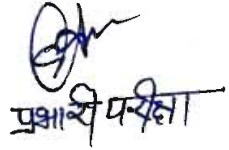 प्रभारी परीक्षा